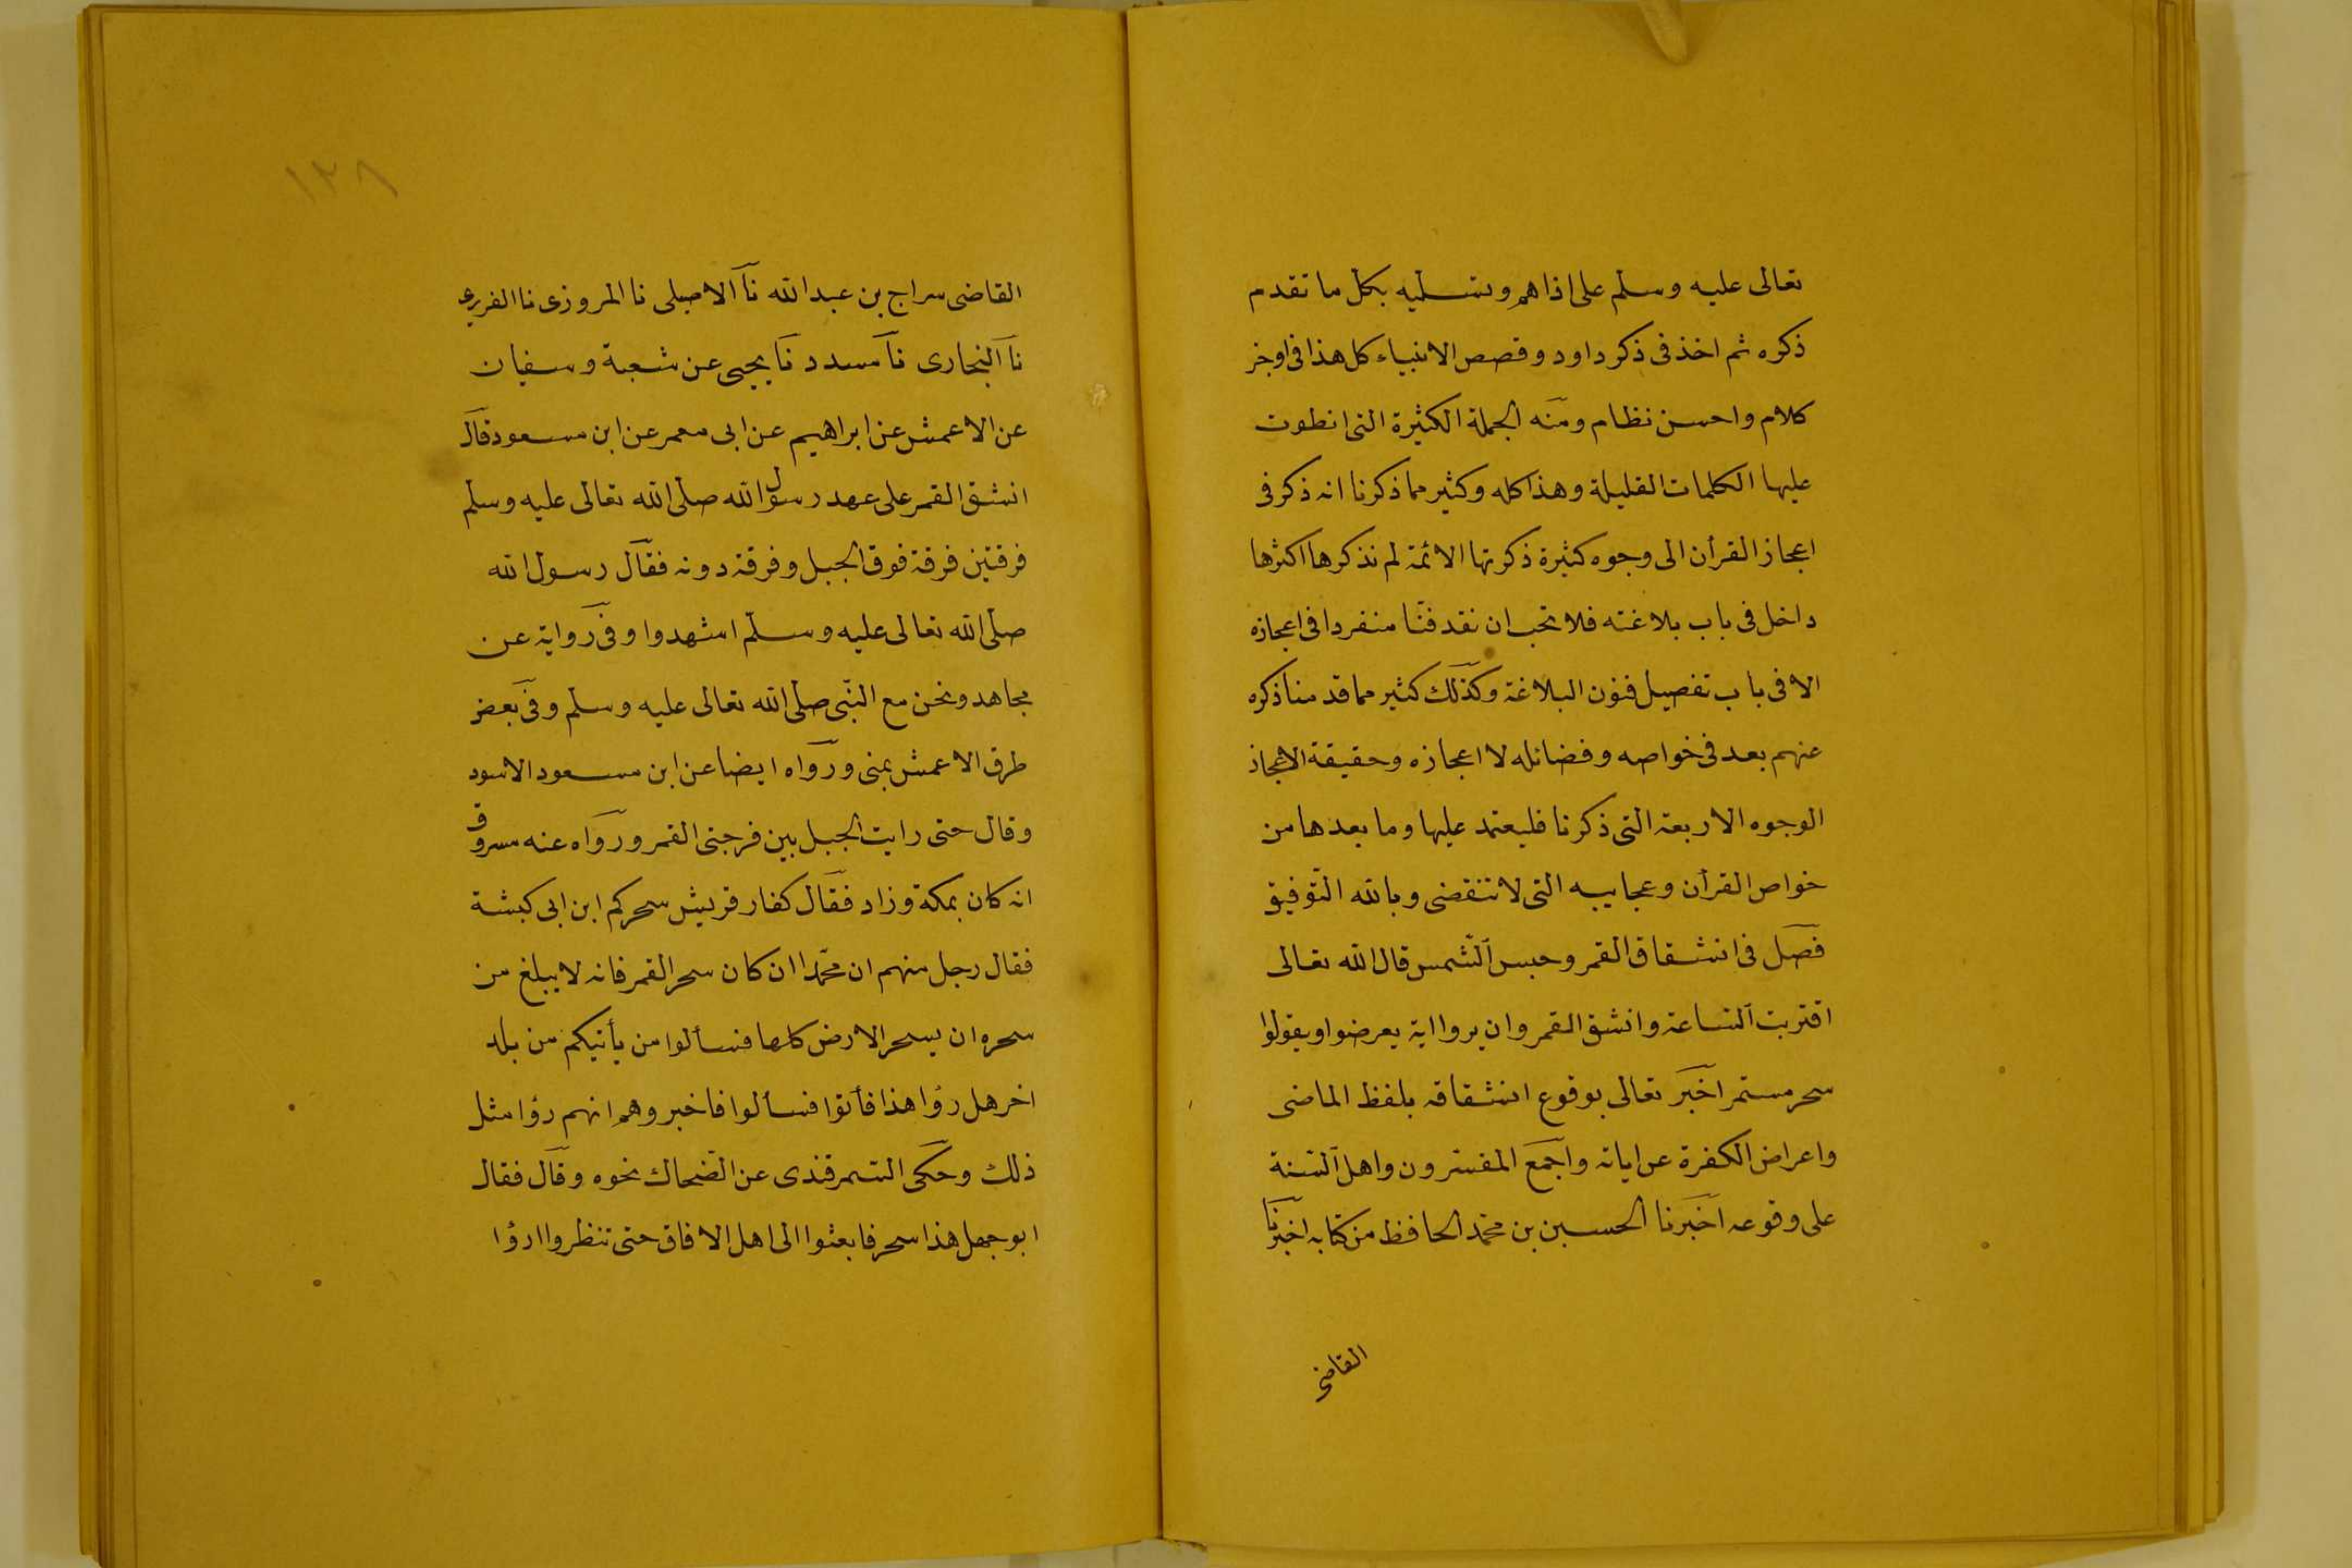 تعالى عليه وسلم على اذاهم وتسليه بكل ما تقدم
ذكره ثم اخذ فى ذكر داود وقصص الانبياء كل هذا فى اوجز
كلام واحسن نظام ومنه الجملة الكثيرة التى انطوت
عليها الكلمات القليلة وهذا كله وكثير مما ذكرنا انه ذكر فى
اعجاز القرأن الى وجوه كثيرة ذكرتها الائمة لم نذكرها اكثرها
داخل فى باب بلاغته فلا تحب ان نقد فنّا منفردا فى اعجازه
الا فى باب تفصيل فنون البلاغة وكذلك كثير مما قد منا ذكره
عنهم بعد فى خواصه وفضائله لا اعجازه وحقيقة الاعجاز
الوجوه الاربعة التى ذكرنا فليعتمد عليها وما بعدها من
خواص القرأن وعجايبه التى لا تنقضى وبالله التّوفيق
فصل فى انشقاق القمر وحبس الشّمس قال الله تعالى
اقتربت السّاعة وانشق القمر وان يروا اية يعرضوا ويقولوا
سحر مستمر اخبر تعالى بوقوع انشقاقه بلفظ الماضى
واعراض الكفرة عن اياته واجمع المفسّرون واهل السّنة
على وقوعه اخبرنا الحسين بن محمّد الحافظ من كتابه اخبرنا
القاضى
١٣٨
القاضى سراج بن عبد الله نا الاصيلى نا المروزى نا الفربرى
نا البخارى نا مسدد نا يحيى عن شعبة وسفيان
عن الاعمش عن ابراهيم عن ابى معمر عن ابن مسعود قال
انشق القمر على عهد رسول الله صلّى الله تعالى عليه وسلّم
فرقتين فرقة فوق الجبل وفرقة دونه فقال رسول الله
صلّى الله تعالى عليه وسلّم اشهدوا وفى رواية عن
مجاهد ونحن مع النّبى صلّى الله تعالى عليه وسلّم وفى بعض
طرق الاعمش بمنى ورواه ايضا عن ابن مسعود الاسود
وقال حتى رايت الجبل بين فرجتى القمر ورواه عنه مسروق
انه كان بمكة وزاد فقال كفار قريش سحركم ابن ابى كبشة
فقال رجل منهم ان محمّدا ان كان سحر القمر فانه لا يبلغ من
سحره ان يسحر الارض كلها فسألوا من يأتيكم من بلد
اخر هل رؤا هذا فأتوا فسألوا فاخبروهم انهم رؤا مثل
ذلك وحكى السّمرقندى عن الضّحاك نحوه وقال فقال
ابو جهل هذا سحر فابعثوا الى اهل الافاق حتى تنظروا ارؤا